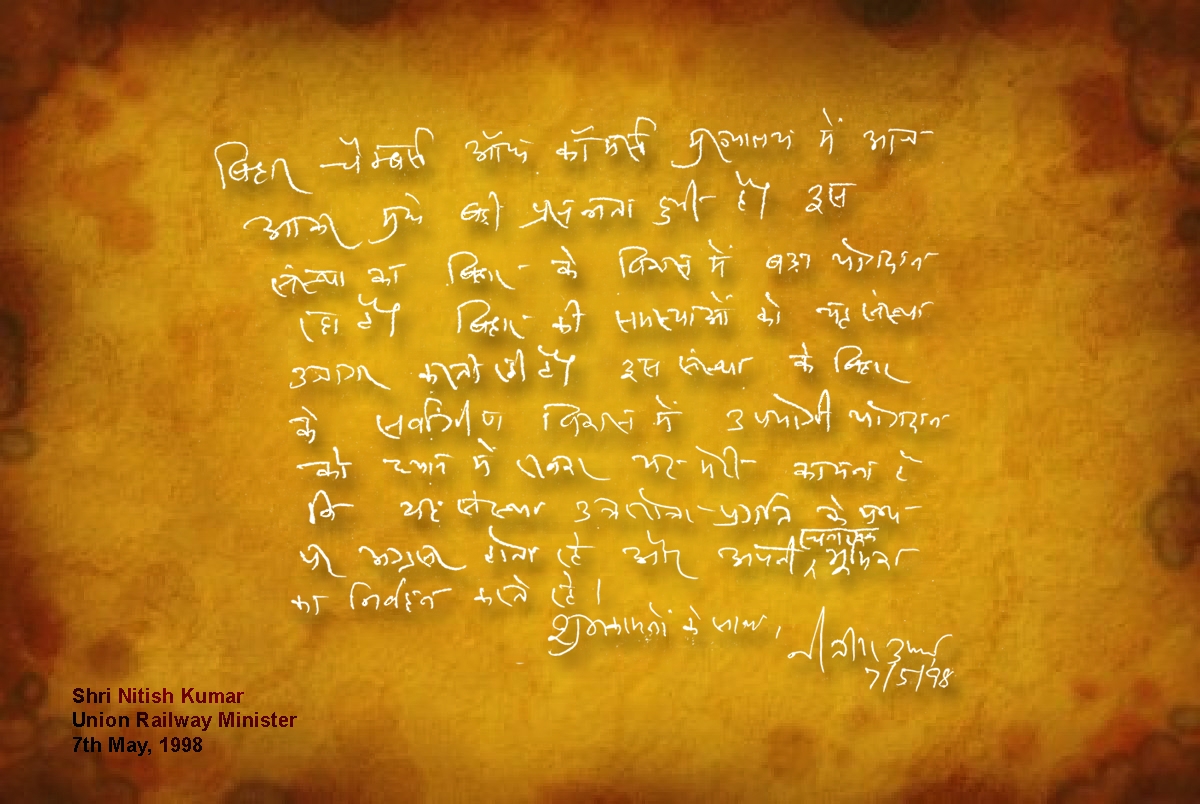 बिहार चैम्बर्स ऑफ कॉमर्स मुख्यालय में आज
आकर मुझे बड़ी प्रसन्नता हुयी है। इस
संस्था का बिहार के विकास में बड़ा योगदान
रहा है। बिहार की समस्याओं को यह संस्था
उजागर करती रही है। इस संस्था के बिहार
के सर्वांगीण विकास में उपयोगी योगदान
को ध्यान में रखकर यह मेरी कामना है
कि यह संस्था उत्तरोत्तर प्रगति के पथ
पर अग्रसर होता रहे और अपनी रचनात्मक भूमिका
का निर्वहन करते रहे।
शुभकामनाओं के साथ,
नीतीश कुमार
7/5/98
Shri Nitish Kumar
Union Railway Minister
7th May, 1998